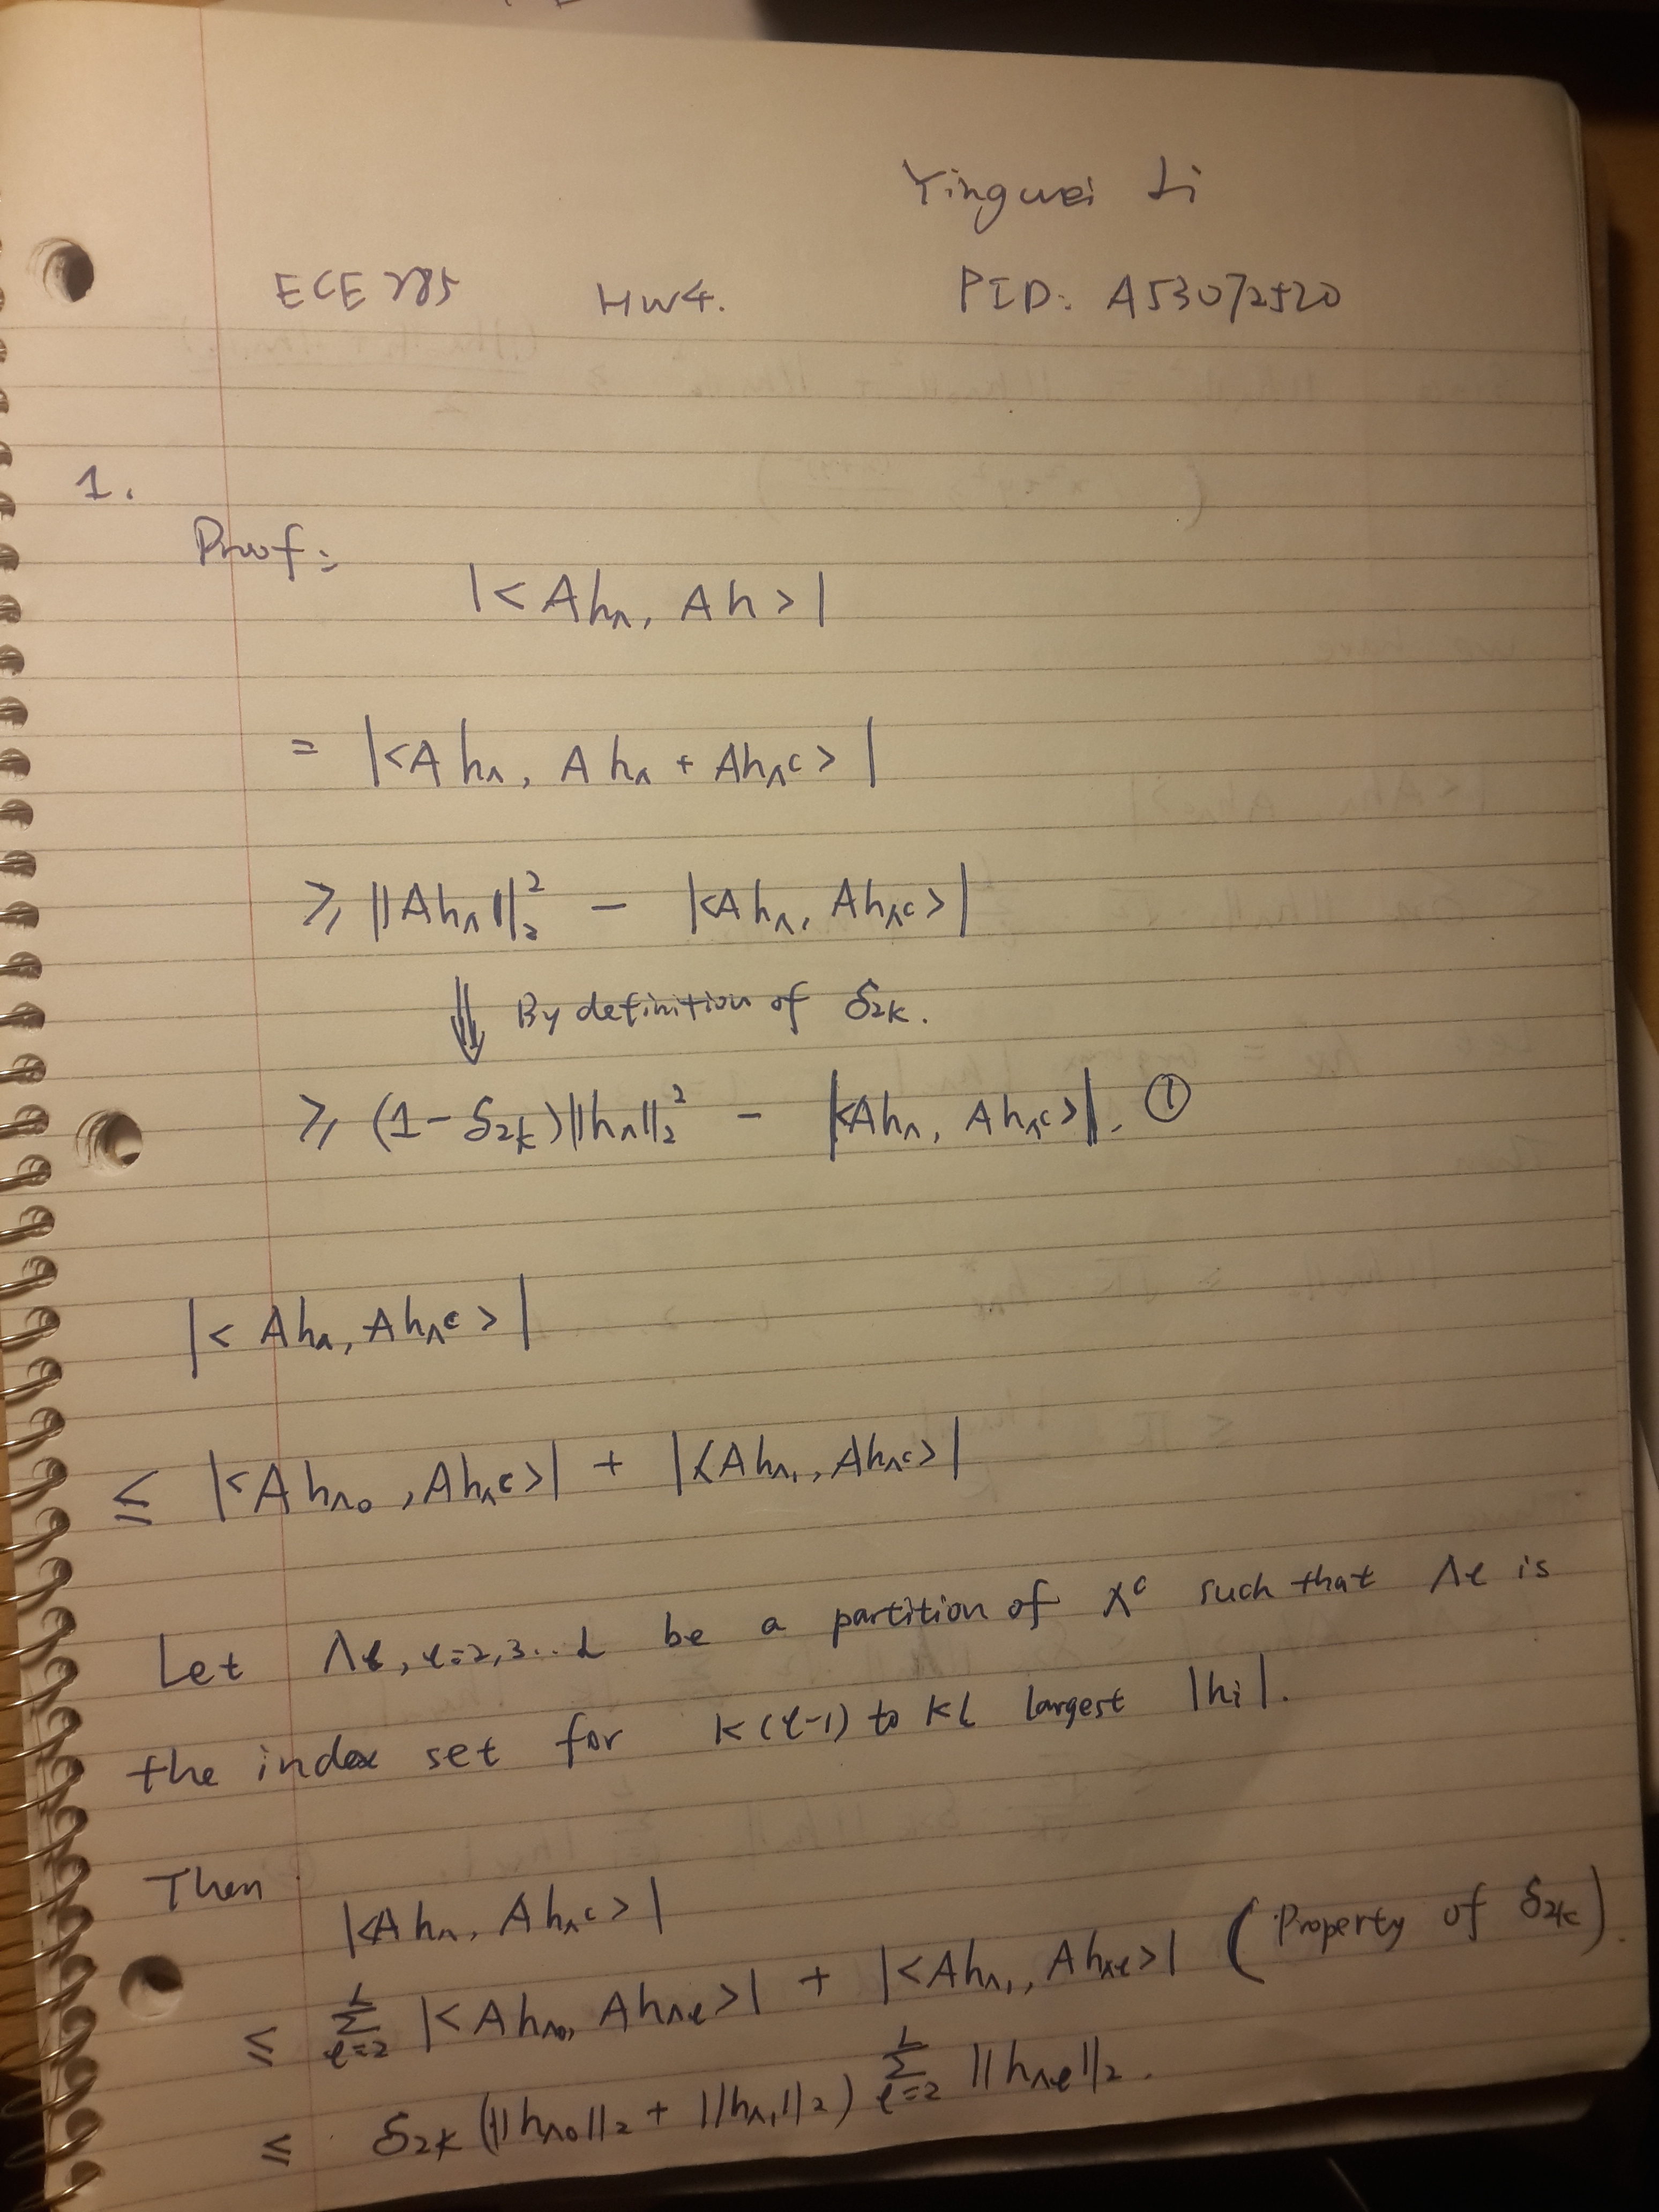 Yingwei Li
ECE 285 HW4. PID: A53072520
1.
Proof:
|< A h_Λ, A h >|
= |<A h_Λ, A h_Λ + A h_Λᶜ >|
≥ ||A h_Λ||₂² − |<A h_Λ, A h_Λᶜ>|
⇓ By definition of δ_2k.
≥ (1−δ_2k)||h_Λ||₂² − |<A h_Λ, A h_Λᶜ>|. ①
|< A h_Λ, A h_Λᶜ >|
≤ |<A h_Λ₀, A h_Λᶜ>| + |<A h_Λ₁, A h_Λᶜ>|
Let Λℓ, ℓ=2,3...L be a partition of Λᶜ such that Λℓ is
the index set for k(ℓ-1) to kℓ largest |hi|.
Then
|<A h_Λ, A h_Λᶜ >|
≤ Σ_{ℓ=2}^{L} |<A h_Λ₀, A h_Λℓ>| + |<A h_Λ₁, A h_Λℓ>| (Property of δ_2k).
≤ δ_2k (||h_Λ₀||₂ + ||h_Λ₁||₂) Σ_{ℓ=2}^{L} ||h_Λℓ||₂.